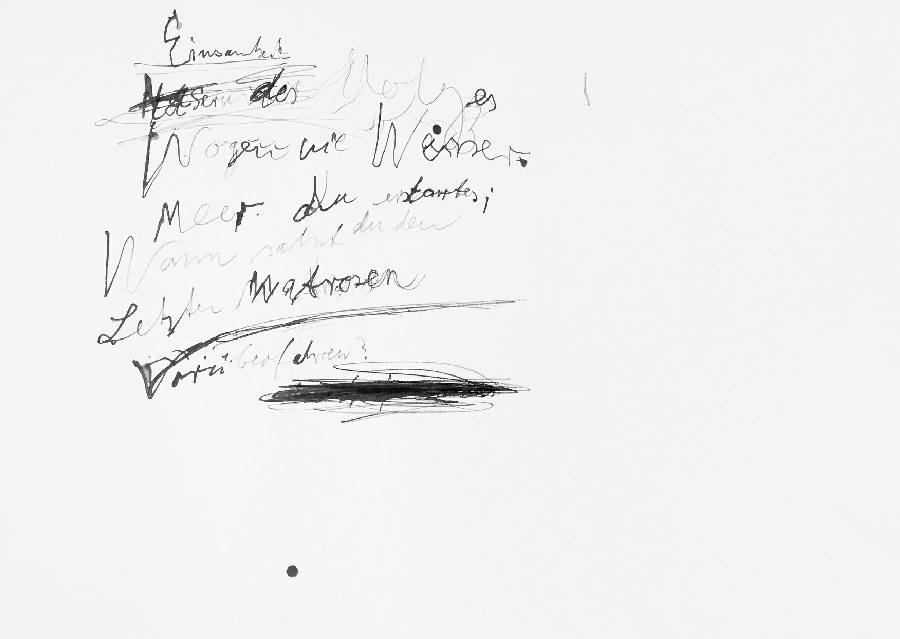 Einsamkeit
Masern des Holzes
Wogen wie Wasser.
Meer. du erstarrtes;
Wann sahst du den
Letzten Matrosen
Vorüberfahren?